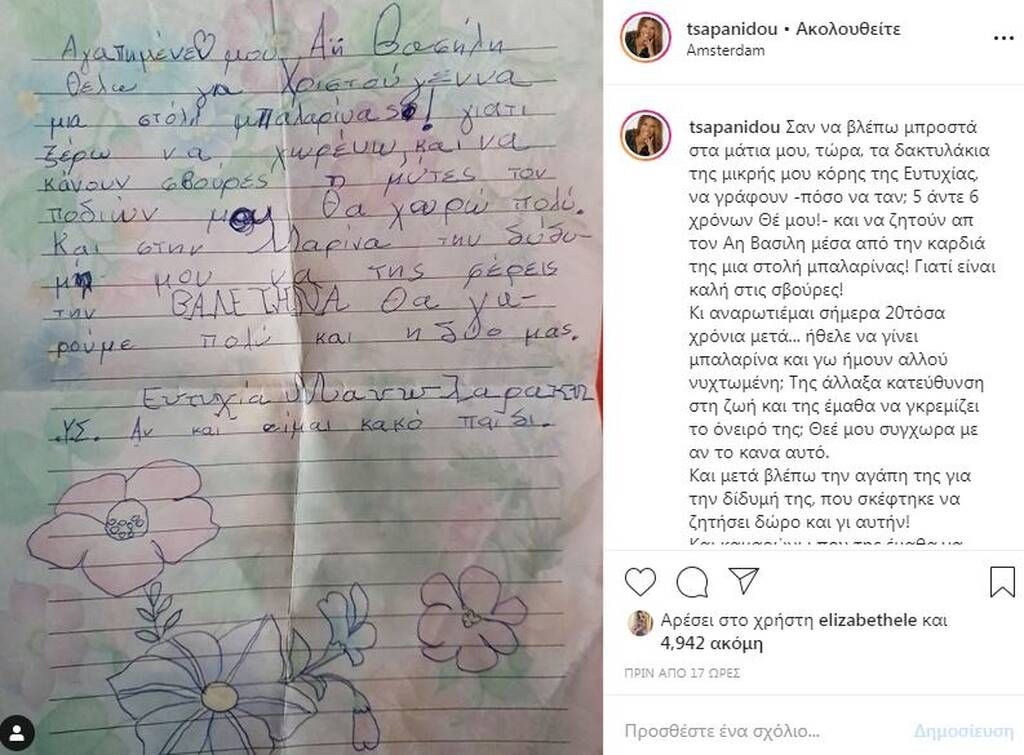 Αγαπημένε♡ μου Αη Βασήλη
Θέλω για Χριστούγεννα
μια στόλη μπαλαρίνας! γιατι
ξέρω να χωρέυω και να
κάνουν σβούρες η μύτες τον
ποδιών μου Θα χαρώ πολύ.
Και στην Μαρίνα την δύδυ-
μη μου να της φέρεις
την ΒΑΛΕΤΗΝΑ Θα χα-
ρούμε πολύ και η δύο μας.
Ευτυχία
.ΥΣ. Αν και είμαι κακό παιδι.
tsapanidou • Ακολουθείτε
Amsterdam
tsapanidou Σαν να βλέπω μπροστά
στα μάτια μου, τώρα, τα δακτυλάκια
της μικρής μου κόρης της Ευτυχίας,
να γράφουν -πόσο να ταν; 5 άντε 6
χρόνων Θέ μου!- και να ζητούν απ
τον Αη Βασιλη μέσα από την καρδιά
της μια στολή μπαλαρίνας! Γιατί είναι
καλή στις σβούρες!
Κι αναρωτιέμαι σήμερα 20τόσα
χρόνια μετά... ήθελε να γίνει
μπαλαρίνα και γω ήμουν αλλού
νυχτωμένη; Της άλλαξα κατεύθυνση
στη ζωή και της έμαθα να γκρεμίζει
το όνειρό της; Θεέ μου συγχωρα με
αν το κανα αυτό.
Και μετά βλέπω την αγάπη της για
την δίδυμή της, που σκέφτηκε να
ζητήσει δώρο και γι αυτήν!
Αρέσει στο χρήστη elizabethele και
4,942 ακόμη
ΠΡΙΝ ΑΠΟ 17 ΩΡΕΣ
Προσθέστε ένα σχόλιο...
Δημοσίευση